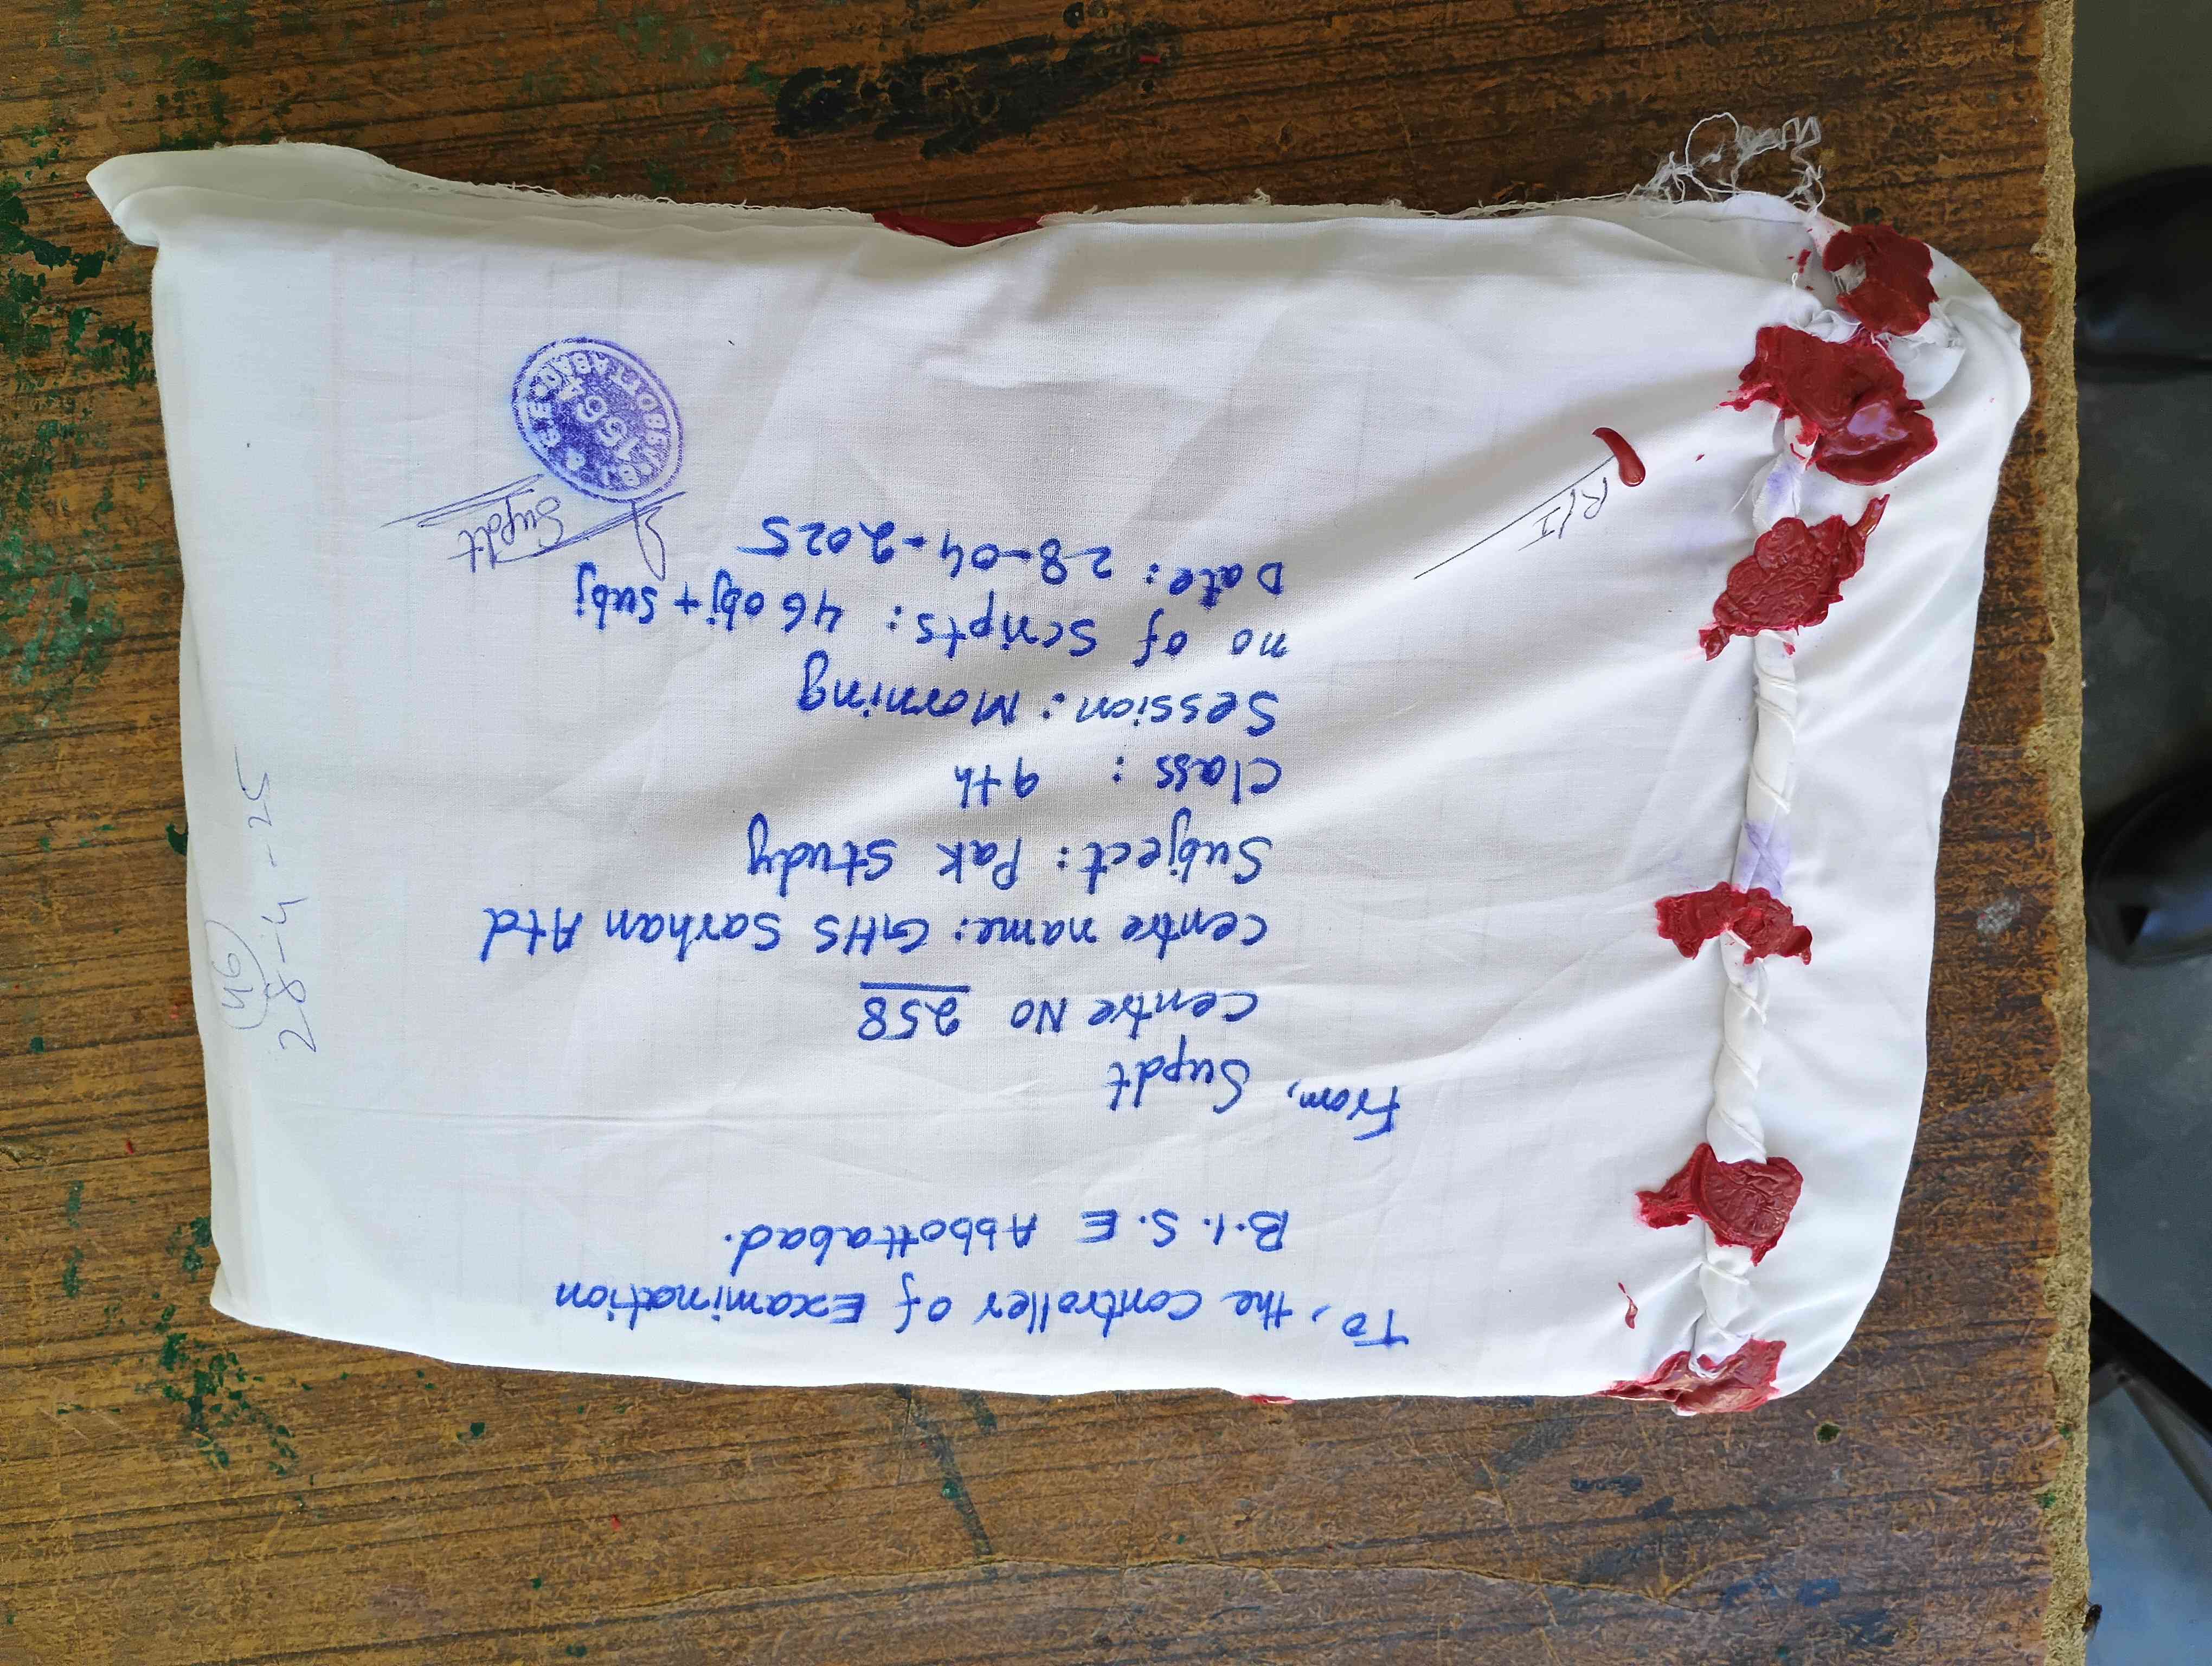 To, the Controller of Examination
B.I.S.E Abbottabad.
From, Supdt
Centre No 258
Centre name: GHS Sarhan Atd
Subject: Pak Study
Class: 9th
Session: Morning
no of Scripts: 46 obj + Subj
Date: 28-04-2025
Supdt
B.I & S E ABBOTTABAD
1564
R/I
(46)
28-4-25